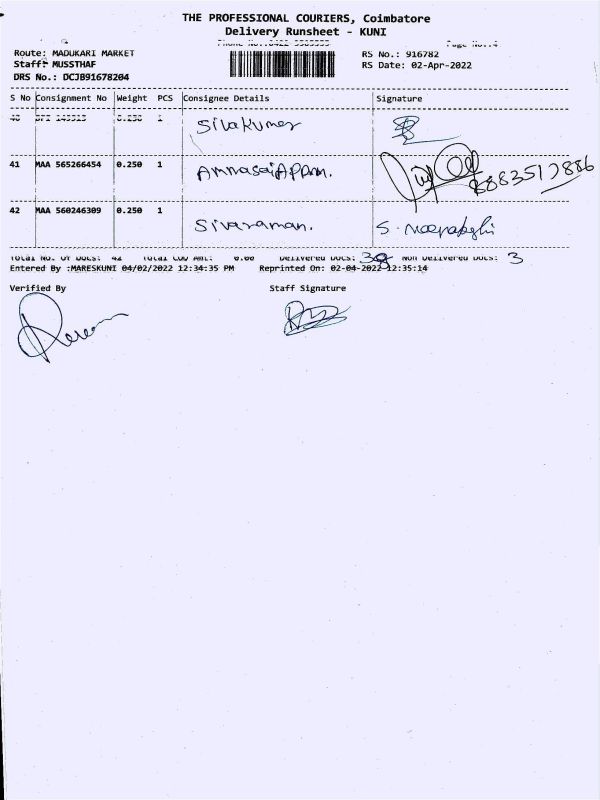 THE PROFESSIONAL COURIERS, Coimbatore
Delivery Runsheet - KUNI
Route: MADUKARI MARKET
RS No.: 916782
Staff: MUSSTHAF
RS Date: 02-Apr-2022
DRS No.: DCJB91678204
S No Consignment No Weight PCS Consignee Details Signature
40 0.250 1 Sivakumar
41 MAA 565266454 0.250 1 AnnasaiAppan. 8883517886
42 MAA 560246309 0.250 1 Sivaraman.
Total No. Of Docs: 42 Total COD Amt: 0.00 Delivered Docs: 39 Non Delivered Docs: 3
Entered By :MARESKUNI 04/02/2022 12:34:35 PM Reprinted On: 02-04-2022 12:35:14
Verified By Staff Signature